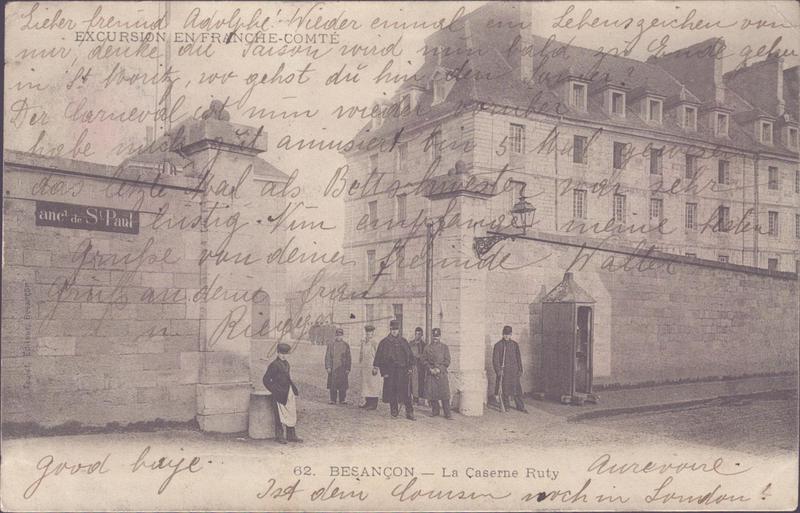 Lieber freund Adolphe! Wieder einmal ein Lebenszeichen von
EXCURSION EN FRANCHE-COMTÉ
mir, denke die Saison wird nun bald zu Ende gehen
in St Moritz, wo gehst dü hin den
Der Carneval ist nun wieder vorüber
habe mich güt amusiert bin 5 Mal gewesen
das letzte Mal als Bettschwester war sehr
lustig. Nun empfange meine besten
anct. de St Paul
Grüsse von deiner freunde Walter
Grüss an deine frau
u Rieugger
Good baije.
62. BESANÇON — La Caserne Ruty
Aurevoire.
Ist dein Cousin noch in London?